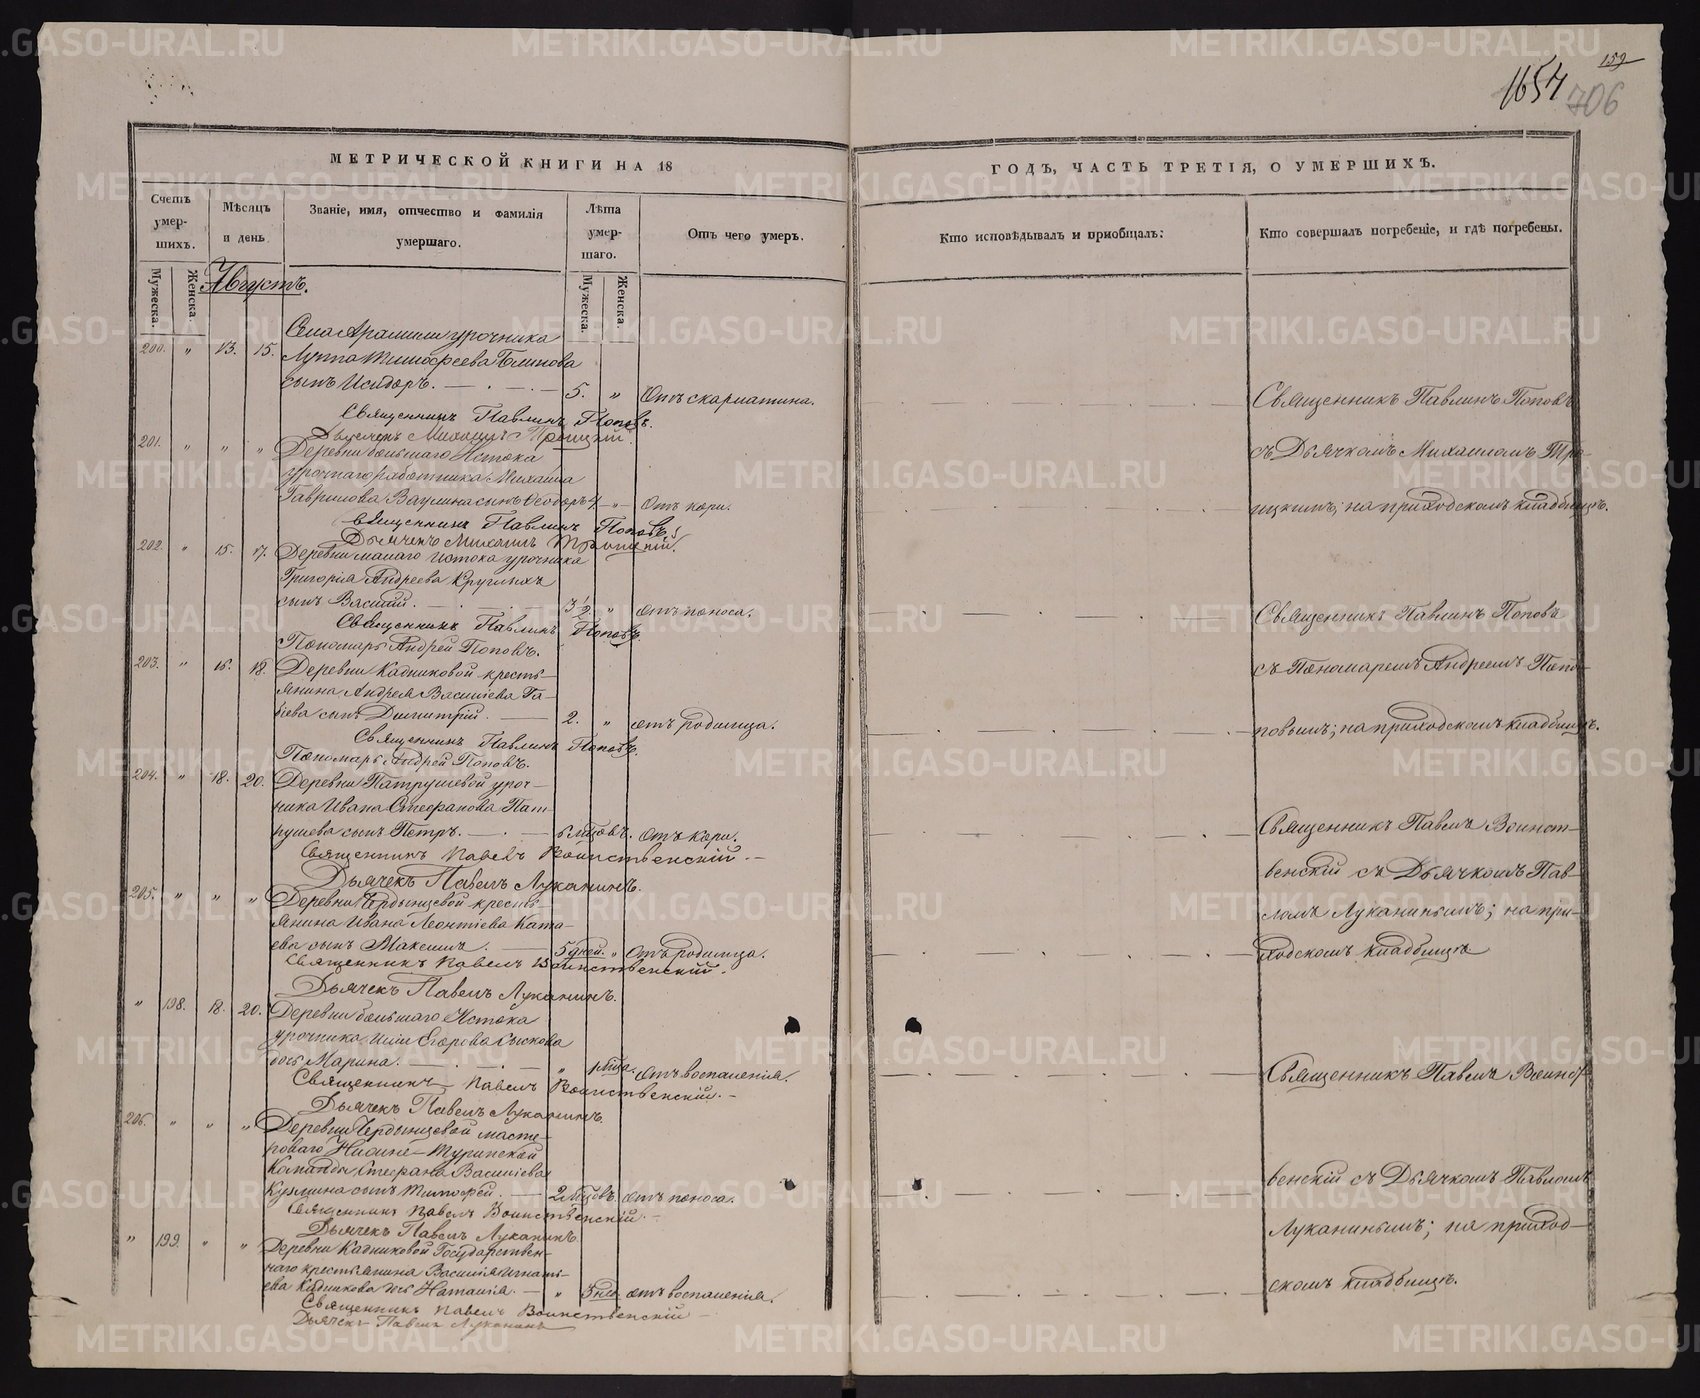 159
1657
706
МЕТРИЧЕСКОЙ КНИГИ НА 18
ГОДЪ, ЧАСТЬ ТРЕТІЯ, О УМЕРШИХЪ.
Счетъ умер-шихъ.
Мѣсяцъ и день
Званіе, имя, отчество и фамилія умершаго.
Лѣта умер-шаго.
Отъ чего умеръ.
Кто исповѣдывалъ и пріобщалъ:
Кто совершалъ погребеніе, и гдѣ погребены.
Мужеска.
Женска.
Мужеска.
Женска.
Августъ.
Села Арамили урочника
200. " 13. 15. Луппа Тимофеева Блинова
сынъ Исидоръ. 5. " Отъ скарлатина.
Священникъ Павлинъ Поповъ.
Дьячекъ Михаилъ Троицкій.
201. " " " Деревни большаго Истока
урочнаго работника Михаила
Гаврилова Ваулина сынъ Феодоръ 4 " Отъ кори.
Священникъ Павлинъ Поповъ.
Дьячекъ Михаилъ Троицкій.
Священникъ Павлинъ Поповъ
съ Дьячкомъ Михаиломъ Тро-
ицкимъ; на приходскомъ кладбищѣ.
202. " 15. 17. Деревни малаго истока урочника
Григорія Андреева Круглыхъ
сынъ Василій. 3 1/2 " отъ поноса.
Священникъ Павлинъ Поповъ.
Пономарь Андрей Поповъ.
203. " 16. 18. Деревни Кадниковой кресть-
янина Андрея Василіева Га-
біева сынъ Димитрій. 2. " отъ родимца.
Священникъ Павлинъ Поповъ.
Пономарь Андрей Поповъ.
Священникъ Павлинъ Поповъ
съ Пономаремъ Андреемъ Попо-
повымъ; на приходскомъ кладбищѣ.
204. " 18. 20. Деревни Патрушевой уроч-
ника Ивана Стефанова Пат-
рушева сынъ Петръ. 6 мѣсѣцовъ. Отъ кори.
Священникъ Павелъ Воинственскій.
Дьячекъ Павелъ Луканинъ.
205. " " " Деревни Чердынцевой кресть-
янина Ивана Леонтіева Ката-
ева сынъ Максимъ. 5 дней. " Отъ родимца.
Священникъ Павелъ Воинственскій.
Дьячекъ Павелъ Луканинъ.
Священникъ Павелъ Воинст-
венскій съ Дьячкомъ Пав-
ломъ Луканинымъ; на при-
ходскомъ кладбищѣ
" 198. 18. 20. Деревни большаго Истока
урочника Егорова Сыскова
дочь Марина. " отъ воспаленія.
Священникъ Павелъ Воинственскій.
Дьячекъ Павелъ Луканинъ.
206. " " " Деревни Чердынцевой масте-
роваго Нижне-Туринской
Команды Стефана Василіева
Кузмина сынъ Тимофей. 2 мцовъ. отъ поноса.
Священникъ Павелъ Воинственскій.
Дьячекъ Павелъ Луканинъ.
" 199. " " Деревни Кадниковой Государствен-
наго крестьянина Василія Игнать-
ева Кадникова дочь Наталія. " отъ воспаленія.
Священникъ Павелъ Воинственскій
Дьячекъ Павелъ Луканинъ
Священникъ Павелъ Воинст-
венскій съ Дьячкомъ Павломъ
Луканинымъ; на приход-
скомъ кладбищѣ.
METRIKI.GASO-URAL.RU